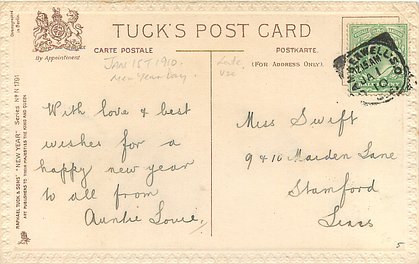 TUCK'S POST CARD
CARTE POSTALE
POSTKARTE.
(FOR ADDRESS ONLY).
By Appointment
Chromographed in Berlin.
RAPHAEL TUCK & SONS' "NEW YEAR" Series No N 1791
ART PUBLISHERS TO THEIR MAJESTIES THE KING AND QUEEN
JAN 1ST 1910.
New Years Day.
Late
use
With love & best
wishes for a
happy new year
to all from
Auntie Louie.
Miss Swift
9 & 10 Maiden Lane
Stamford
Lincs
5